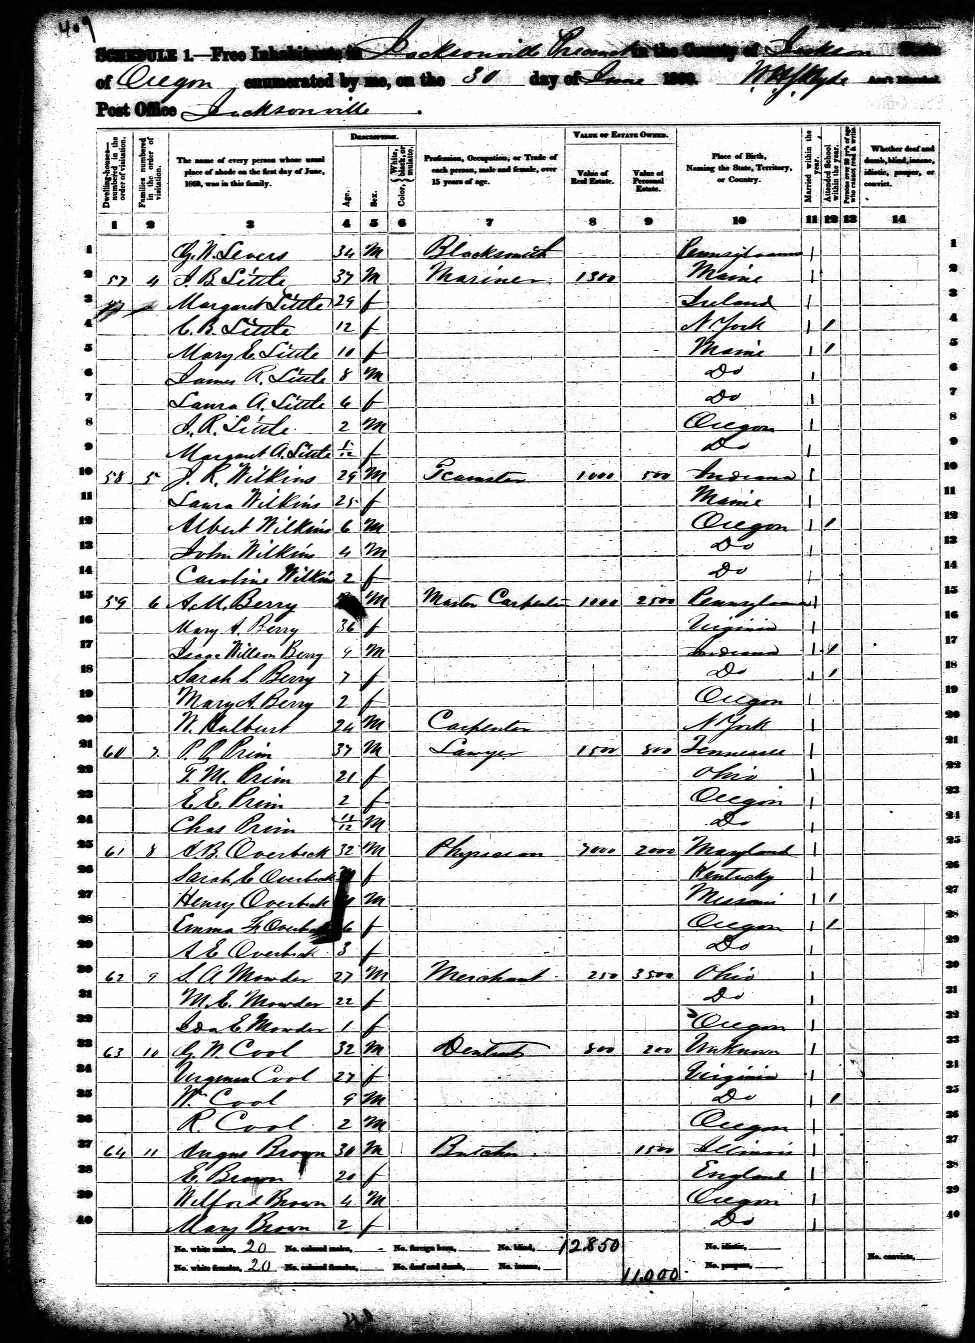 409
SCHEDULE 1.—Free Inhabitants in Jacksonville Precinct in the County of Jackson State
of Oregon enumerated by me, on the 30 day of June 1860. Ass't Marshal.
Post Office Jacksonville
Dwelling-houses—numbered in the order of visitation. Families numbered in the order of visitation. The name of every person whose usual place of abode on the first day of June, 1860, was in this family. DESCRIPTION. Age. Sex. Color, White, black, or mulatto. Profession, Occupation, or Trade of each person, male and female, over 15 years of age. VALUE OF ESTATE OWNED. Value of Real Estate. Value of Personal Estate. Place of Birth, Naming the State, Territory, or Country. Married within the year. Attended School within the year. Persons over 20 y'rs of age who cannot read & write. Whether deaf and dumb, blind, insane, idiotic, pauper, or convict.
1 2 3 4 5 6 7 8 9 10 11 12 13 14
1 G. W. Levers 34 M Blacksmith Pennsylvania 1
2 57 4 J. B. Little 37 M Mariner 1300 Maine 2
3 Margaret Little 29 f Ireland 3
4 C. B. Little 12 f N York 1 4
5 Mary E. Little 10 f Maine 1 5
6 James R. Little 8 M Do 6
7 Laura A. Little 6 f Do 7
8 J. R. Little 2 M Oregon 8
9 Margaret A. Little f Do 9
10 58 5 J. R. Wilkins 29 M Teamster 1000 500 Indiana 10
11 Laura Wilkins 25 f Maine 11
12 Albert Wilkins 6 M Oregon 1 12
13 John Wilkins 4 M Do 13
14 Caroline Wilkins 2 f Do 14
15 59 6 A. M. Berry M Master Carpenter 1000 2500 Pennsylvania 15
16 Mary A. Berry 36 f Virginia 16
17 Isaac Willson Berry 9 M Indiana 1 17
18 Sarah L Berry 7 f Do 1 18
19 Mary A. Berry 2 f Oregon 19
20 W. Hulburt 24 M Carpenter N York 20
21 60 7 P. P. Prim 37 M Lawyer 1500 800 Tennessee 21
22 T. M. Prim 21 f Ohio 22
23 E. E. Prim 2 f Oregon 23
24 Chas Prim 11/12 M Do 24
25 61 8 A. B. Overbeck 32 M Physician 7000 2000 Maryland 25
26 Sarah E Overbeck f Kentucky 26
27 Henry Overbeck M Missouri 1 27
28 Emma Overbeck 6 f Oregon 1 28
29 A E Overbeck 3 f Do 29
30 62 9 S. A. Mowder 27 M Merchant 250 3500 Ohio 30
31 M. E. Mowder 22 f Do 31
32 Ida E. Mowder 1 f Oregon 32
33 63 10 G. W. Cool 32 M Dentist 800 200 Unknown 33
34 Virginia Cool 27 f Virginia 34
35 W. Cool 9 M Do 1 35
36 R. Cool 2 M Oregon 36
37 64 11 Angus Brown 30 M Butcher 1500 Illinois 37
38 E. Brown 20 f England 38
39 Wilford Brown 4 M Oregon 39
40 Mary Brown 2 f Do 40
No. white males, 20 No. colored males, - No. foreign born, No. blind, 12850 No. idiotic,
No. white females, 20 No. colored females, No. deaf and dumb, No. insane, 11,000 No. paupers, No. convicts,